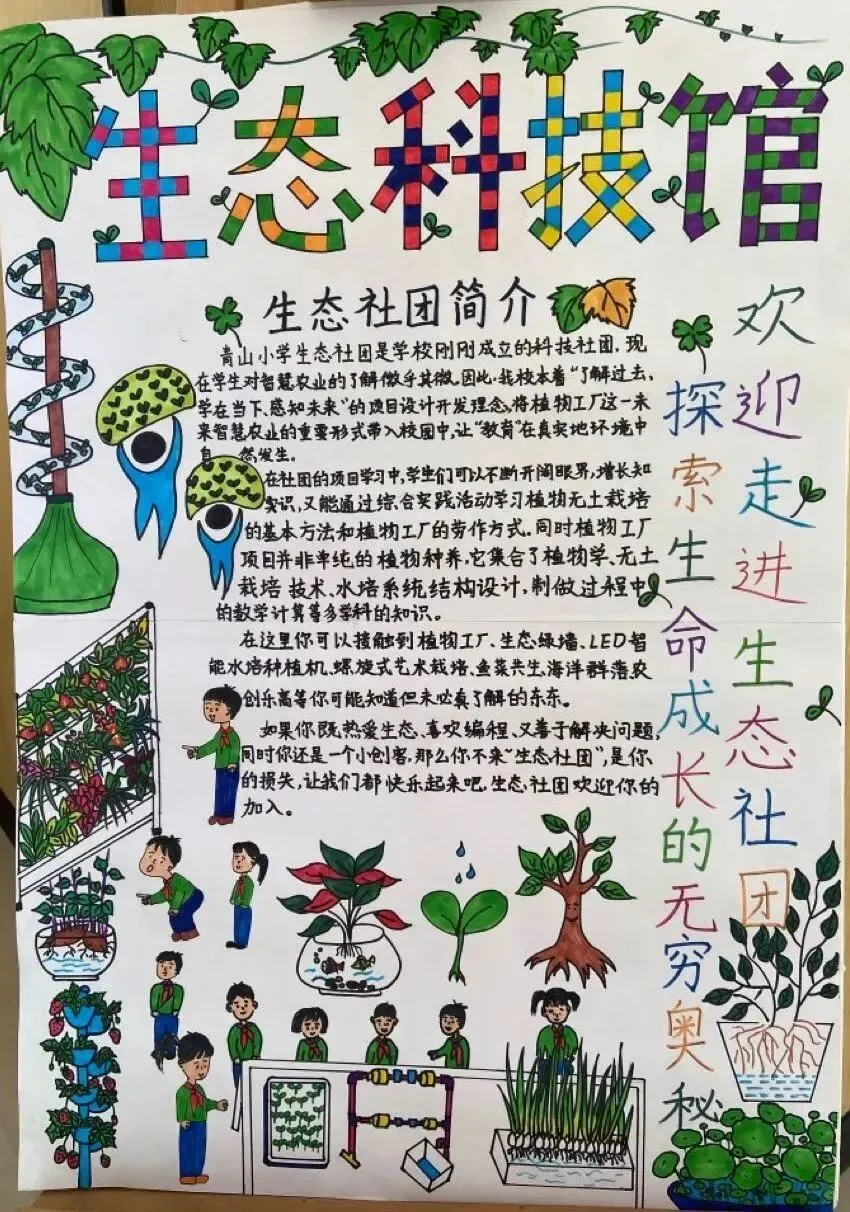 生态科技馆
生态社团简介
青山小学生态社团是学校刚刚成立的科技社团,现
在学生对智慧农业的了解微乎其微。因此,我校本着“了解过去,
学在当下,感知未来”的项目设计开发理念,将植物工厂这一未
来智慧农业的重要形式带入校园中,让“教育”在真实地环境中
然发生。
在社团的项目学习中,学生们可以不断开阔眼界,增长知
识,又能通过综合实践活动学习植物无土栽培
的基本方法和植物工厂的劳作方式。同时植物工厂
项目并非单纯的植物种养,它集合了植物学、无土
栽培技术、水培系统结构设计,制做过程中
的数学计算等多学科的知识。
在这里你可以接触到植物工厂、生态绿墙、LED智
能水培种植机、螺旋式艺术栽培、鱼菜共生、海洋群落、农
创乐高等你可能知道但未必真了解的东东。
如果你既热爱生态、喜欢编程、又善于解决问题,
同时你还是一个小创客,那么你不来“生态社团”,是你
的损失,让我们都快乐起来吧,生态社团欢迎你的
加入。
欢迎走进生态社团
探索生命成长的无穷奥秘